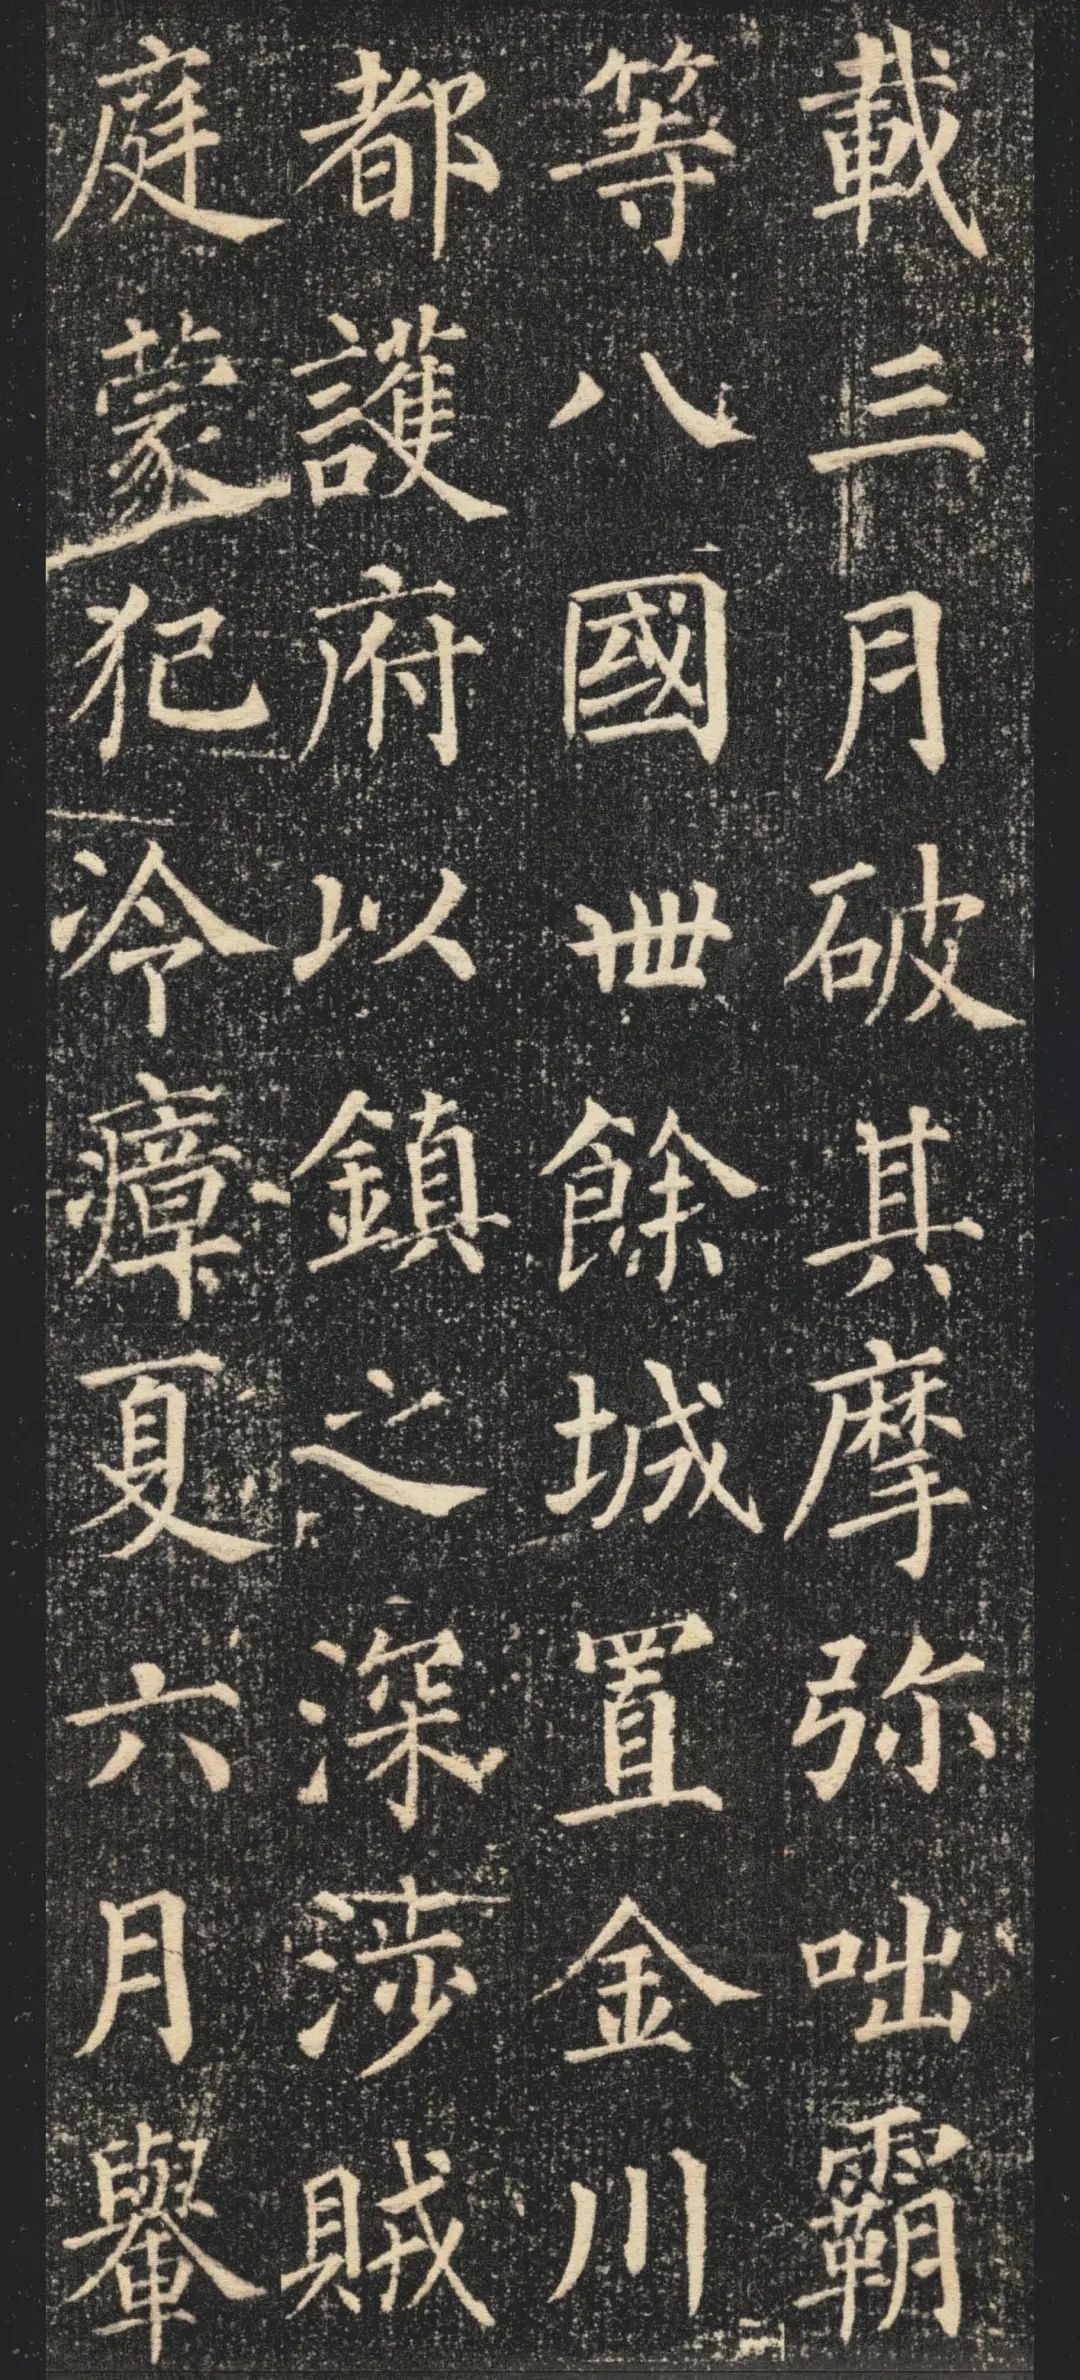 載三月破其摩弥咄霸
等八國卌餘城置金川
都護府以鎮之深涉賊
庭蒙犯冷瘴夏六月轝